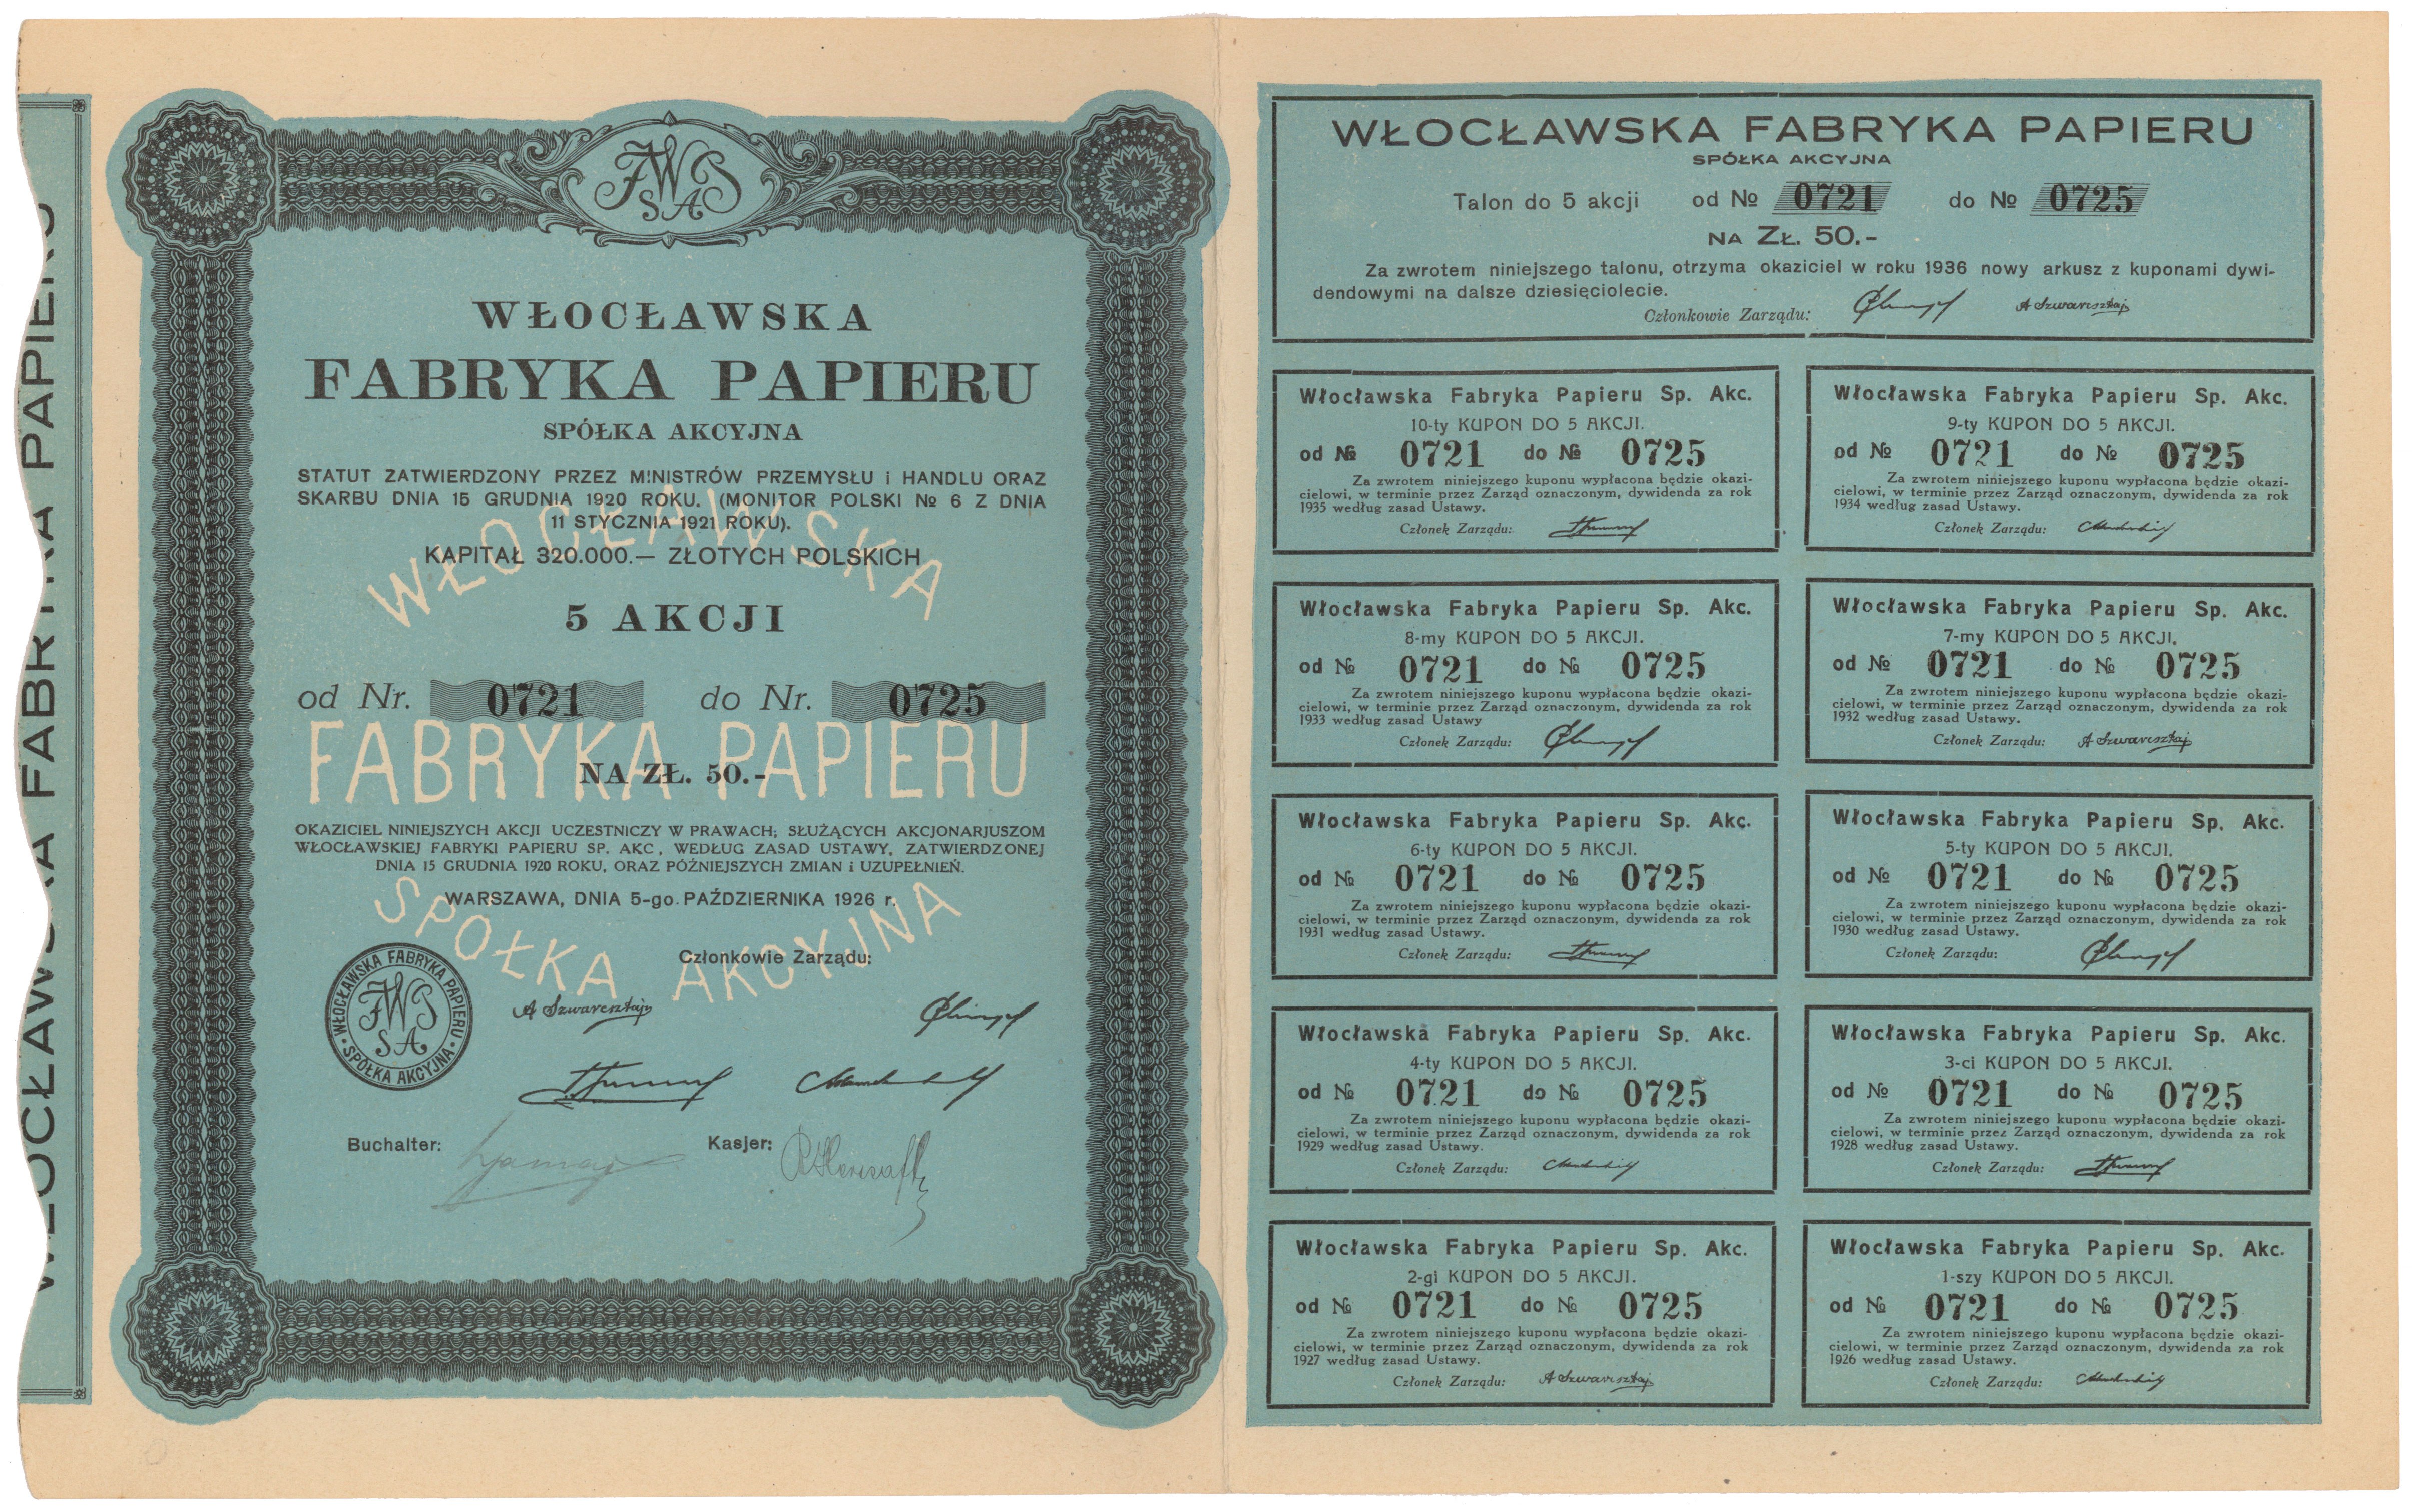 WŁOCŁAWSKA FABRYKA PAPIERU
FWP
S.A.
WŁOCŁAWSKA
FABRYKA PAPIERU
SPÓŁKA AKCYJNA
STATUT ZATWIERDZONY PRZEZ MINISTRÓW PRZEMYSŁU i HANDLU ORAZ
SKARBU DNIA 15 GRUDNIA 1920 ROKU. (MONITOR POLSKI № 6 Z DNIA
11 STYCZNIA 1921 ROKU).
KAPITAŁ 320.000.— ZŁOTYCH POLSKICH
WŁOCŁAWSKA
5 AKCJI
od Nr. 0721 do Nr. 0725
FABRYKA PAPIERU
NA ZŁ. 50.-
OKAZICIEL NINIEJSZYCH AKCJI UCZESTNICZY W PRAWACH; SŁUŻĄCYCH AKCJONARJUSZOM
WŁOCŁAWSKIEJ FABRYKI PAPIERU SP. AKC, WEDŁUG ZASAD USTAWY, ZATWIERDZONEJ
DNIA 15 GRUDNIA 1920 ROKU, ORAZ PÓŹNIEJSZYCH ZMIAN i UZUPEŁNIEŃ.
WARSZAWA, DNIA 5-go PAŹDZIERNIKA 1926 r.
SPÓŁKA AKCYJNA
Członkowie Zarządu:
WŁOCŁAWSKA FABRYKA PAPIERU
SPÓŁKA AKCYJNA
A Szwarcsztajn
Buchalter:
Kasjer:
WŁOCŁAWSKA FABRYKA PAPIERU
SPÓŁKA AKCYJNA
Talon do 5 akcji od № 0721 do № 0725
NA ZŁ. 50.-
Za zwrotem niniejszego talonu, otrzyma okaziciel w roku 1936 nowy arkusz z kuponami dywi-
dendowymi na dalsze dziesięciolecie.
Członkowie Zarządu: A Szwarcsztajn
Włocławska Fabryka Papieru Sp. Akc.
10-ty KUPON DO 5 AKCJI.
od № 0721 do № 0725
Za zwrotem niniejszego kuponu wypłacona będzie okazi-
cielowi, w terminie przez Zarząd oznaczonym, dywidenda za rok
1935 według zasad Ustawy.
Członek Zarządu:
Włocławska Fabryka Papieru Sp. Akc.
9-ty KUPON DO 5 AKCJI.
od № 0721 do № 0725
Za zwrotem niniejszego kuponu wypłacona będzie okazi-
cielowi, w terminie przez Zarząd oznaczonym, dywidenda za rok
1934 według zasad Ustawy.
Członek Zarządu:
Włocławska Fabryka Papieru Sp. Akc.
8-my KUPON DO 5 AKCJI.
od № 0721 do № 0725
Za zwrotem niniejszego kuponu wypłacona będzie okazi-
cielowi, w terminie przez Zarząd oznaczonym, dywidenda za rok
1933 według zasad Ustawy
Członek Zarządu:
Włocławska Fabryka Papieru Sp. Akc.
7-my KUPON DO 5 AKCJI.
od № 0721 do № 0725
Za zwrotem niniejszego kuponu wypłacona będzie okazi-
cielowi, w terminie przez Zarząd oznaczonym, dywidenda za rok
1932 według zasad Ustawy.
Członek Zarządu: A Szwarcsztajn
Włocławska Fabryka Papieru Sp. Akc.
6-ty KUPON DO 5 AKCJI.
od № 0721 do № 0725
Za zwrotem niniejszego kuponu wypłacona będzie okazi-
cielowi, w terminie przez Zarząd oznaczonym, dywidenda za rok
1931 według zasad Ustawy.
Członek Zarządu:
Włocławska Fabryka Papieru Sp. Akc.
5-ty KUPON DO 5 AKCJI.
od № 0721 do № 0725
Za zwrotem niniejszego kuponu wypłacona będzie okazi-
cielowi, w terminie przez Zarząd oznaczonym, dywidenda za rok
1930 według zasad Ustawy.
Członek Zarządu:
Włocławska Fabryka Papieru Sp. Akc.
4-ty KUPON DO 5 AKCJI.
od № 0721 do № 0725
Za zwrotem niniejszego kuponu wypłacona będzie okazi-
cielowi, w terminie przez Zarząd oznaczonym, dywidenda za rok
1929 według zasad Ustawy.
Członek Zarządu:
Włocławska Fabryka Papieru Sp. Akc.
3-ci KUPON DO 5 AKCJI.
od № 0721 do № 0725
Za zwrotem niniejszego kuponu wypłacona będzie okazi-
cielowi, w terminie przez Zarząd oznaczonym, dywidenda za rok
1928 według zasad Ustawy.
Członek Zarządu:
Włocławska Fabryka Papieru Sp. Akc.
2-gi KUPON DO 5 AKCJI.
od № 0721 do № 0725
Za zwrotem niniejszego kuponu wypłacona będzie okazi-
cielowi, w terminie przez Zarząd oznaczonym, dywidenda za rok
1927 według zasad Ustawy.
Członek Zarządu: A Szwarcsztajn
Włocławska Fabryka Papieru Sp. Akc.
1-szy KUPON DO 5 AKCJI.
od № 0721 do № 0725
Za zwrotem niniejszego kuponu wypłacona będzie okazi-
cielowi, w terminie przez Zarząd oznaczonym, dywidenda za rok
1926 według zasad Ustawy.
Członek Zarządu: